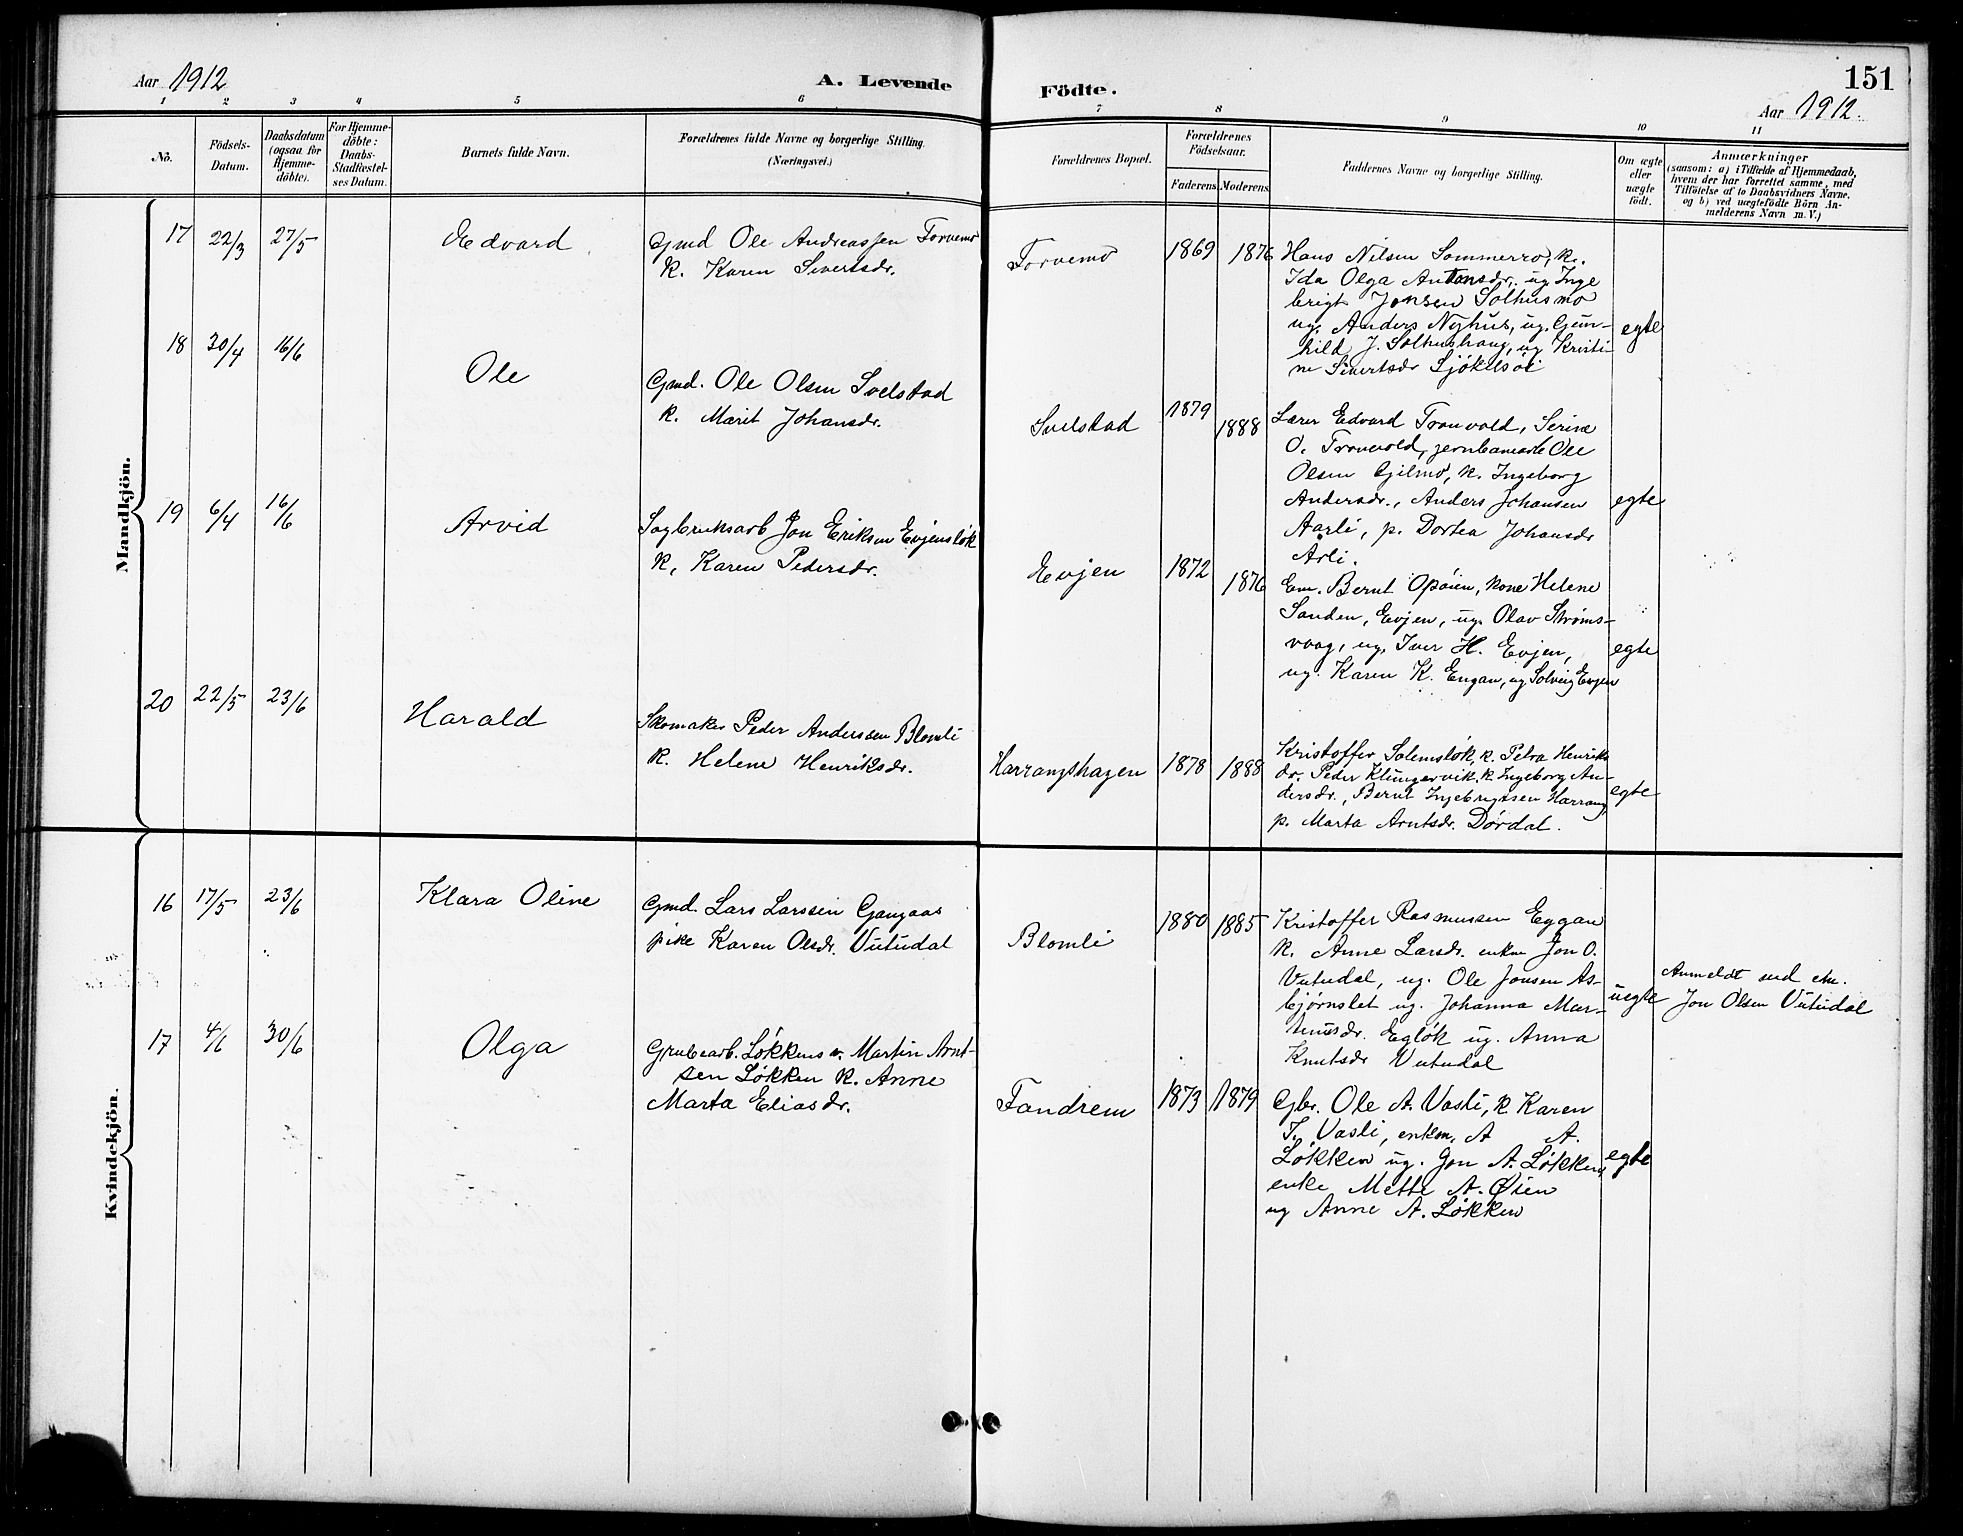 Aar 1912
A. Levende
Födte.
151
Aar 1912.
1 2 3 4 5 6 7 8 9 10 11
No.
Födsels-
Datum.
Daabsdatum
(ogsaa for
Hjemme-
döbte).
For Hjemme-
döbte:
Daabs-
Stadfæstel-
ses Datum.
Barnets fulde Navn.
Forældrenes fulde Navne og borgerlige Stilling.
(Næringsvei.)
Forældrenes Bopæl.
Forældrenes
Födselsaar.
Faderens Moderens
Faddernes Navne og borgerlige Stilling.
Om ægte
eller
uægte
födt.
Anmærkninger
(saasom: a) i Tilfælde af Hjemmedaab,
hvem der har forrettet samme, med
Tilföielse af to Daabsvidners Navne,
og b) ved uægtefödte Börn An-
melderens Navn m. V.)
Mandkjön.
17 22/3 27/5 Edvard
Gmd Ole Andreassen Torvemo
K. Karen Sivertsdr.
Torvemo 1869 1876
Hans Nilsen Sommerro, k.
Ida Olga Antonsdr. ug. Inge
brigt Jonsen Solhusmo
ug. Anders Nyhus, ug. Gun-
hild J. Solhushaug, ug Kristi-
ne Sivertsdr
egte
18 30/4 16/6 Ole
Gmd. Ole Olsen Svelstad
K. Marit Johansdr.
Svelstad 1879 1888
Lærer Edvard Tronvold, Serine
O. Tronvold, jernbanearb Ole
Olsen Gjelmo, k. Ingeborg
Andersdr., Anders Johansen
Aarli, p. Dortea Johansdr
Arli.
egte
19 6/4 16/6 Arvid
Sagbruksarb Jon Eriksen Evjensløk
K, Karen Pedersdr.
Evjen 1872 1876
Em. Bernt Opøien, kone Helene
Sanden, Evjen, ug. Olav Strøms-
vaag, ug, Iver H. Evjen,
ug. Karen K. Engan, ug Solveig Evjen
egte
20 22/5 23/6 Harald
Skomaker Peder Anderssen Blomli
K. Helene Henriksdr.
Harrangshagen 1878 1888
Kristoffer Solemsløk, k. Petra Henriks
dr. Peder Klungervik, k. Ingeborg An-
dersdr., Bernt Ingebrigtsen Harrang,
p. Marta Arntsdr. Dørdal.
egte
Kvindekjön.
16 17/5 23/6 Klara Oline
Gmd. Lars Larssen Gangaas
pike Karen Olsdr. Vutudal
Blomli 1880 1885
Kristoffer Rasmussen Eggan
K. Anne Larsdr. enkm Jon O.
Vutudal, ug. Ole Jonsen As-
bjørnslet ug. Johanna Mar-
tinusdr. Egløk ug. Anna
Knutsdr Vutudal
uegte
Anmeldt ved
Jon Olsen Vutudal
17 4/6 30/6 Olga
Grubearb. Løkkens v. Martin Arnt-
sen Løkken K. Anne
Marta Eliasdr.
Fandrem 1873 1879
Gbr. Ole A. Vasli, k Karen
J. Vasli, enkm. A A.
Løkken ug. Jon A. Løkken,
enke Mette A. Øien
ug Anne A. Løkken
egte